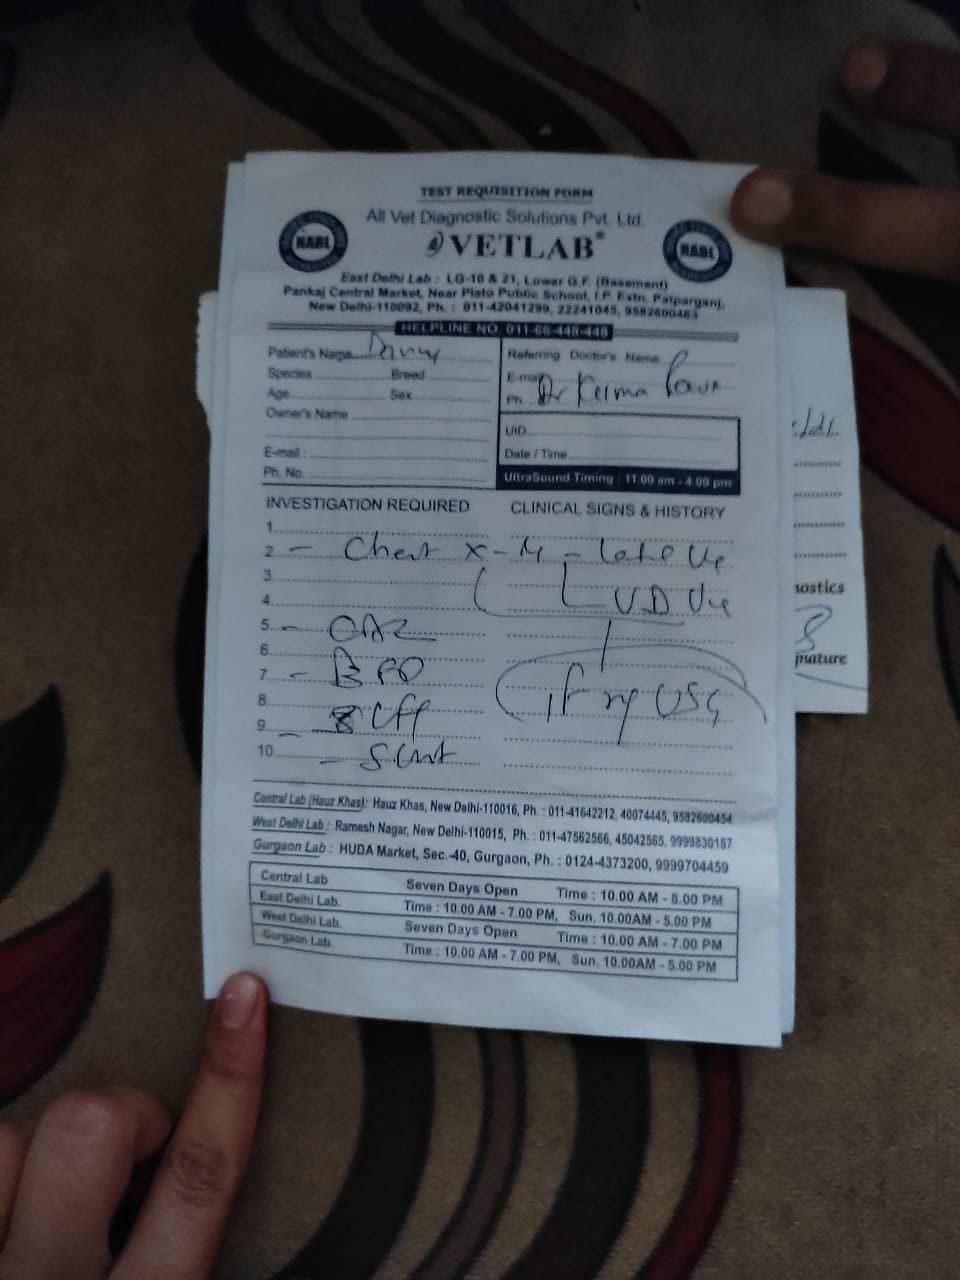 TEST REQUISITION FORM
All Vet Diagnostic Solutions Pvt. Ltd.
NABL
VETLAB®
NABL
East Delhi Lab : LG-10 & 21, Lower G.F. (Basement)
Pankaj Central Market, Near Plato Public School, I.P. Extn. Patparganj,
New Delhi-110092, Ph. : 011-42041299, 22241045, 9582600463
HELPLINE NO. 011-66-448-448
Patient's Name
Species Breed
Age Sex
Owner's Name
E-mail :
Ph. No.
Referring Doctor's Name
E-mail
Ph. Dr
UID
Date / Time
UltraSound Timing : 11.00 am - 4.00 pm
INVESTIGATION REQUIRED
CLINICAL SIGNS & HISTORY
1
2 - Chest X-
3
4
5 -
6
7 -
8
9 -
10 -
VD
if USG
Central Lab (Hauz Khas): Hauz Khas, New Delhi-110016, Ph. : 011-41642212, 40074445, 9582600454
West Delhi Lab : Ramesh Nagar, New Delhi-110015, Ph. : 011-47562566, 45042565, 9999830187
Gurgaon Lab : HUDA Market, Sec.-40, Gurgaon, Ph. : 0124-4373200, 9999704459
Central Lab Seven Days Open Time : 10.00 AM - 8.00 PM
East Delhi Lab. Time : 10.00 AM - 7.00 PM, Sun. 10.00AM - 5.00 PM
West Delhi Lab. Seven Days Open Time : 10.00 AM - 7.00 PM
Gurgaon Lab. Time : 10.00 AM - 7.00 PM, Sun. 10.00AM - 5.00 PM
nostics
nature